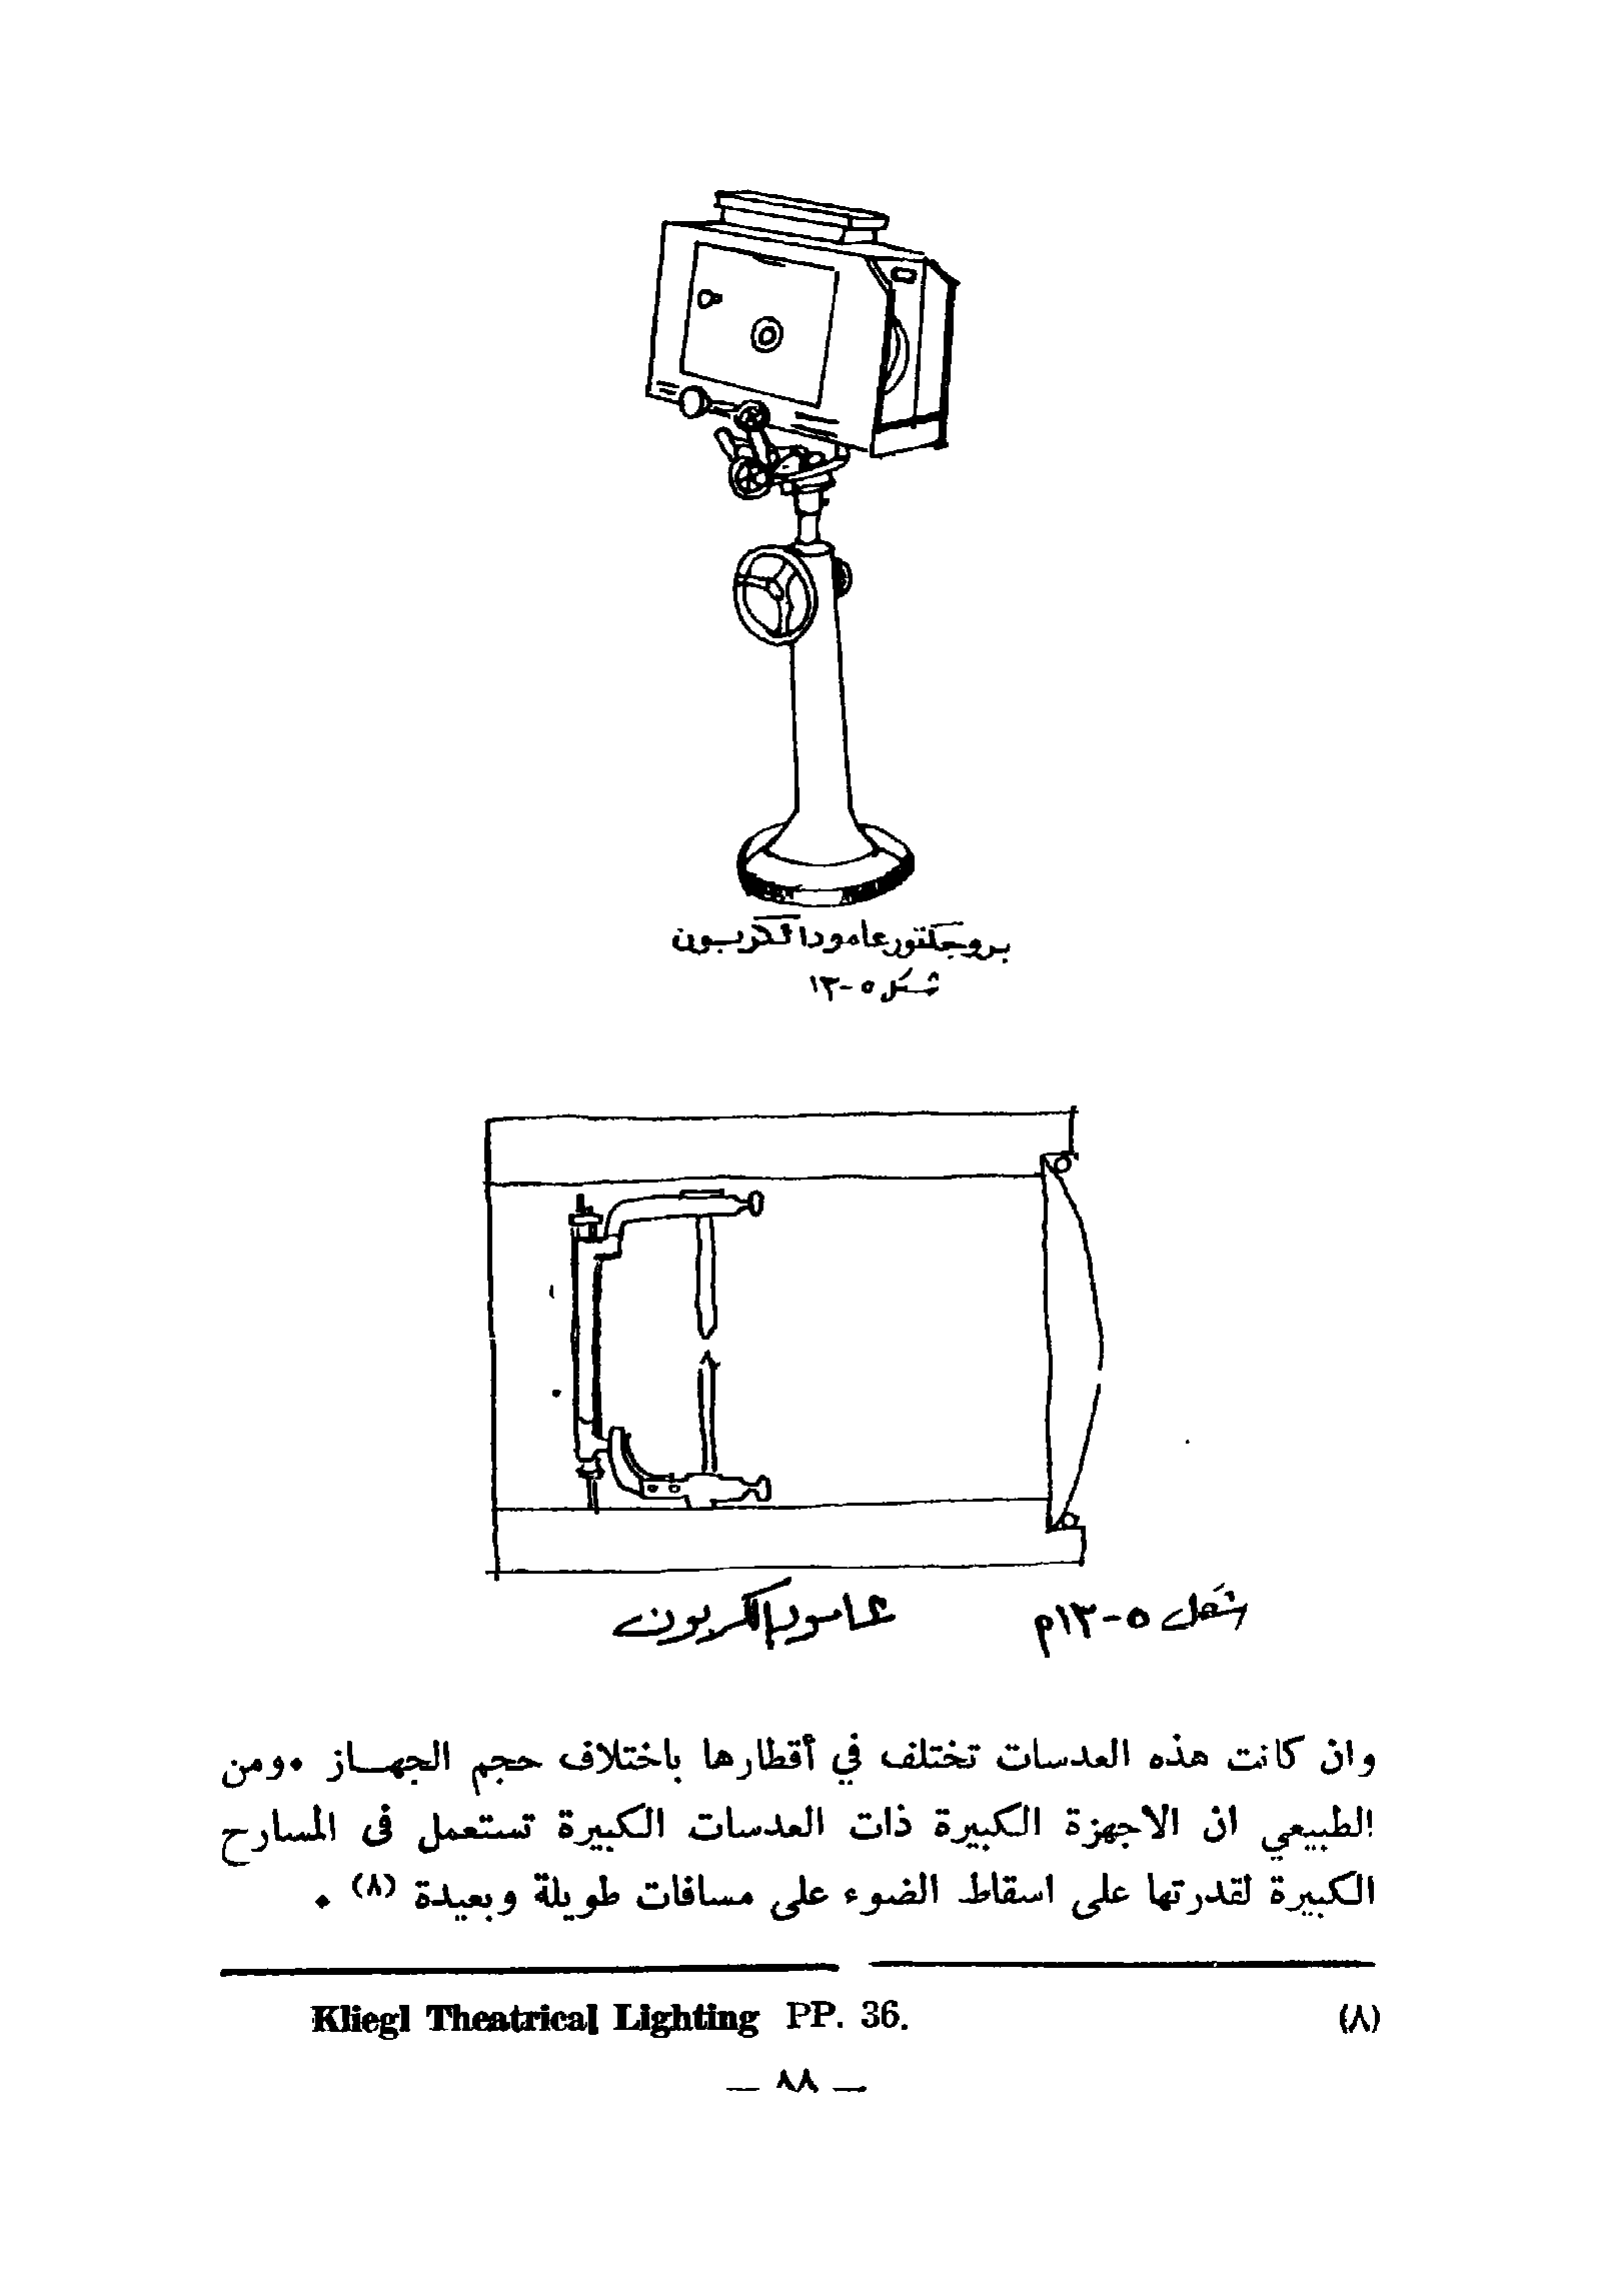 بروجكتور عامود الكربون
شكل ٥-١٣
شكل ٥-١٣م عامود الكربون
وان كانت هذه العدسات تختلف في أقطارها باختلاف حجم الجهــاز ٠ ومن
الطبيعي ان الاجهزة الكبيرة ذات العدسات الكبيرة تستعمل فى المسارح
الكبيرة لقدرتها على اسقاط الضوء على مسافات طويلة وبعيدة (٨) ٠
(٨) Kliegl Theatrical Lighting PP. 36.
— ٨٨ —